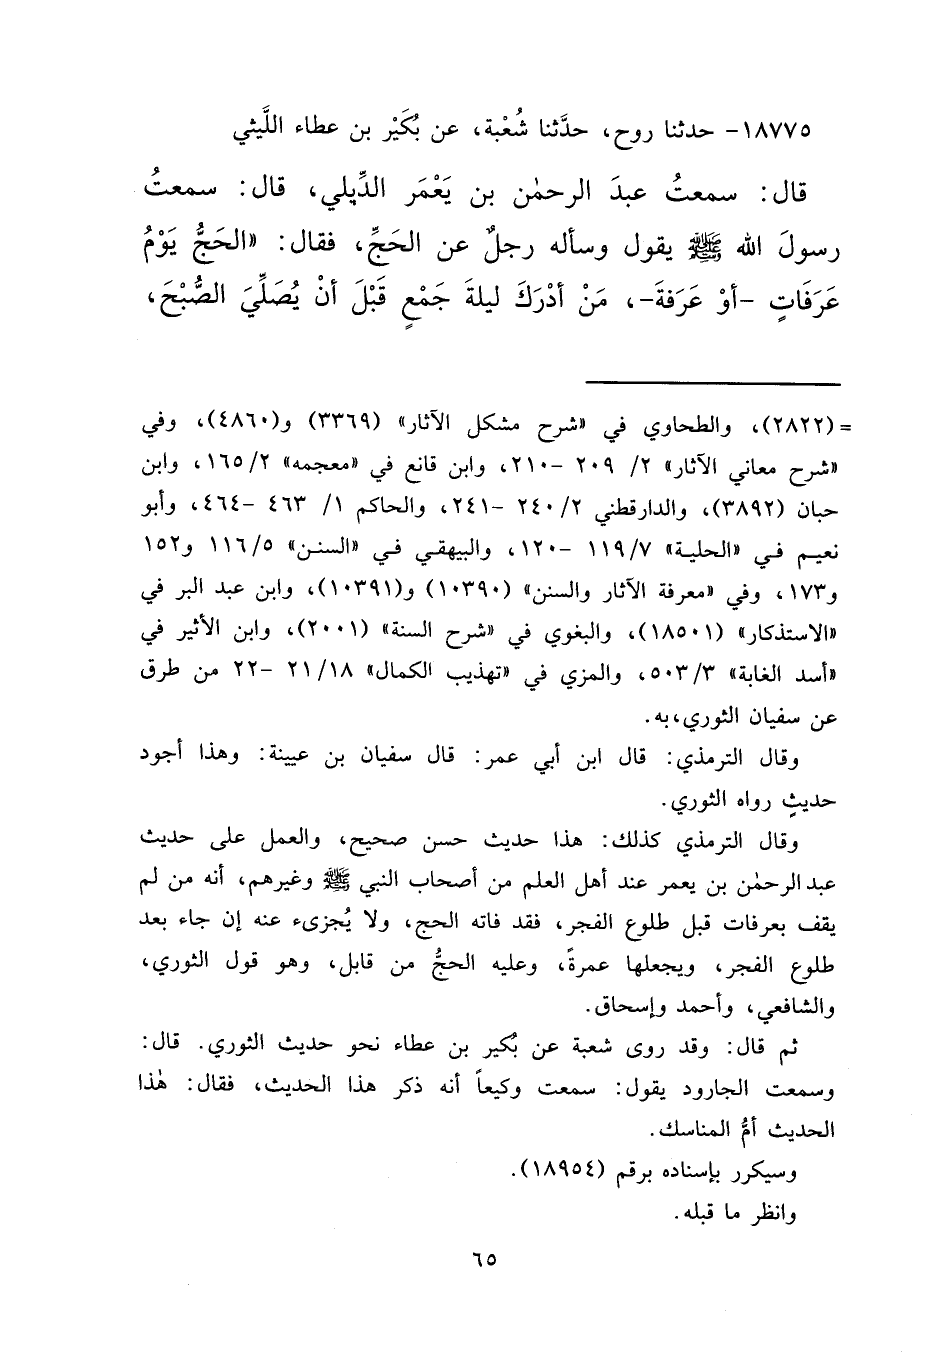 ١٨٧٧٥- حدثنا روح، حدَّثنا شُعْبة، عن بُكَيْر بن عطاء اللَّيثي
قال: سمعتُ عبدَ الرحمٰن بن يَعْمَر الدِّيلي، قال: سمعتُ
رسولَ الله ﷺ يقول وسأله رجلٌ عن الحَجِّ، فقال: «الحَجُّ يَوْمُ
عَرَفَاتٍ -أوْ عَرَفةَ-، مَنْ أدْرَكَ ليلةَ جَمْعٍ قَبْلَ أنْ يُصَلِّيَ الصُّبْحَ،
=(٢٨٢٢)، والطحاوي في «شرح مشكل الآثار» (٣٣٦٩) و(٤٨٦٠)، وفي
«شرح معاني الآثار» ٢/ ٢٠٩ -٢١٠، وابن قانع في «معجمه» ١٦٥/٢، وابن
حبان (٣٨٩٢)، والدارقطني ٢٤٠/٢ -٢٤١، والحاكم ١/ ٤٦٣ -٤٦٤، وأبو
نعيم في «الحلية» ١١٩/٧ -١٢٠، والبيهقي في «السنن» ١١٦/٥ و١٥٢
و١٧٣، وفي «معرفة الآثار والسنن» (١٠٣٩٠) و(١٠٣٩١)، وابن عبد البر في
«الاستذكار» (١٨٥٠١)، والبغوي في «شرح السنة» (٢٠٠١)، وابن الأثير في
«أسد الغابة» ٥٠٣/٣، والمزي في «تهذيب الكمال» ٢١/١٨ -٢٢ من طرق
عن سفيان الثوري،به.
وقال الترمذي: قال ابن أبي عمر: قال سفيان بن عيينة: وهذا أجود
حديثٍ رواه الثوري.
وقال الترمذي كذلك: هذا حديث حسن صحيح، والعمل على حديث
عبد الرحمٰن بن يعمر عند أهل العلم من أصحاب النبي ﷺ وغيرهم، أنه من لم
يقف بعرفات قبل طلوع الفجر، فقد فاته الحج، ولا يُجزىء عنه إن جاء بعد
طلوع الفجر، ويجعلها عمرةً، وعليه الحجُّ من قابل، وهو قول الثوري،
والشافعي، وأحمد وإسحاق.
ثم قال: وقد روى شعبة عن بُكير بن عطاء نحو حديث الثوري. قال:
وسمعت الجارود يقول: سمعت وكيعاً أنه ذكر هذا الحديث، فقال: هٰذا
الحديث أمُّ المناسك.
وسيكرر بإسناده برقم (١٨٩٥٤).
وانظر ما قبله.
٦٥